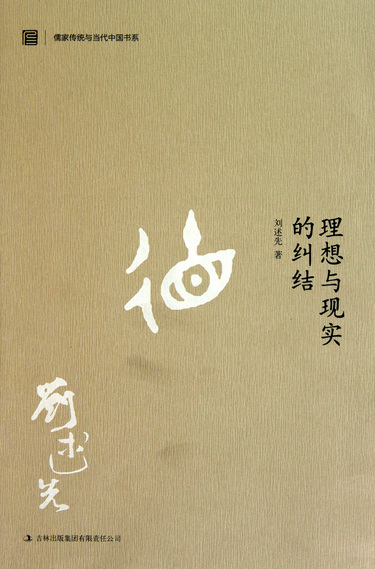 儒家传统与当代中国书系
理想与现实
的纠结
刘述先 著
劉述先
吉林出版集团有限责任公司